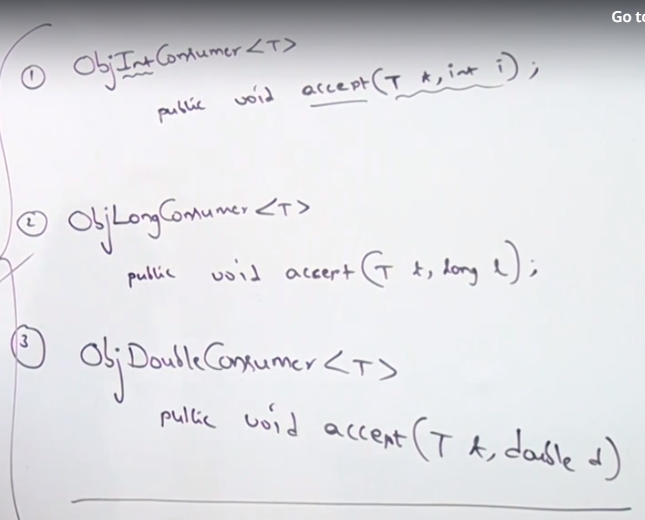 Go to
① ObjIntConsumer<T>
public void accept(T t, int i);
② ObjLongConsumer<T>
public void accept(T t, long l);
③ ObjDoubleConsumer<T>
public void accept(T t, double d)